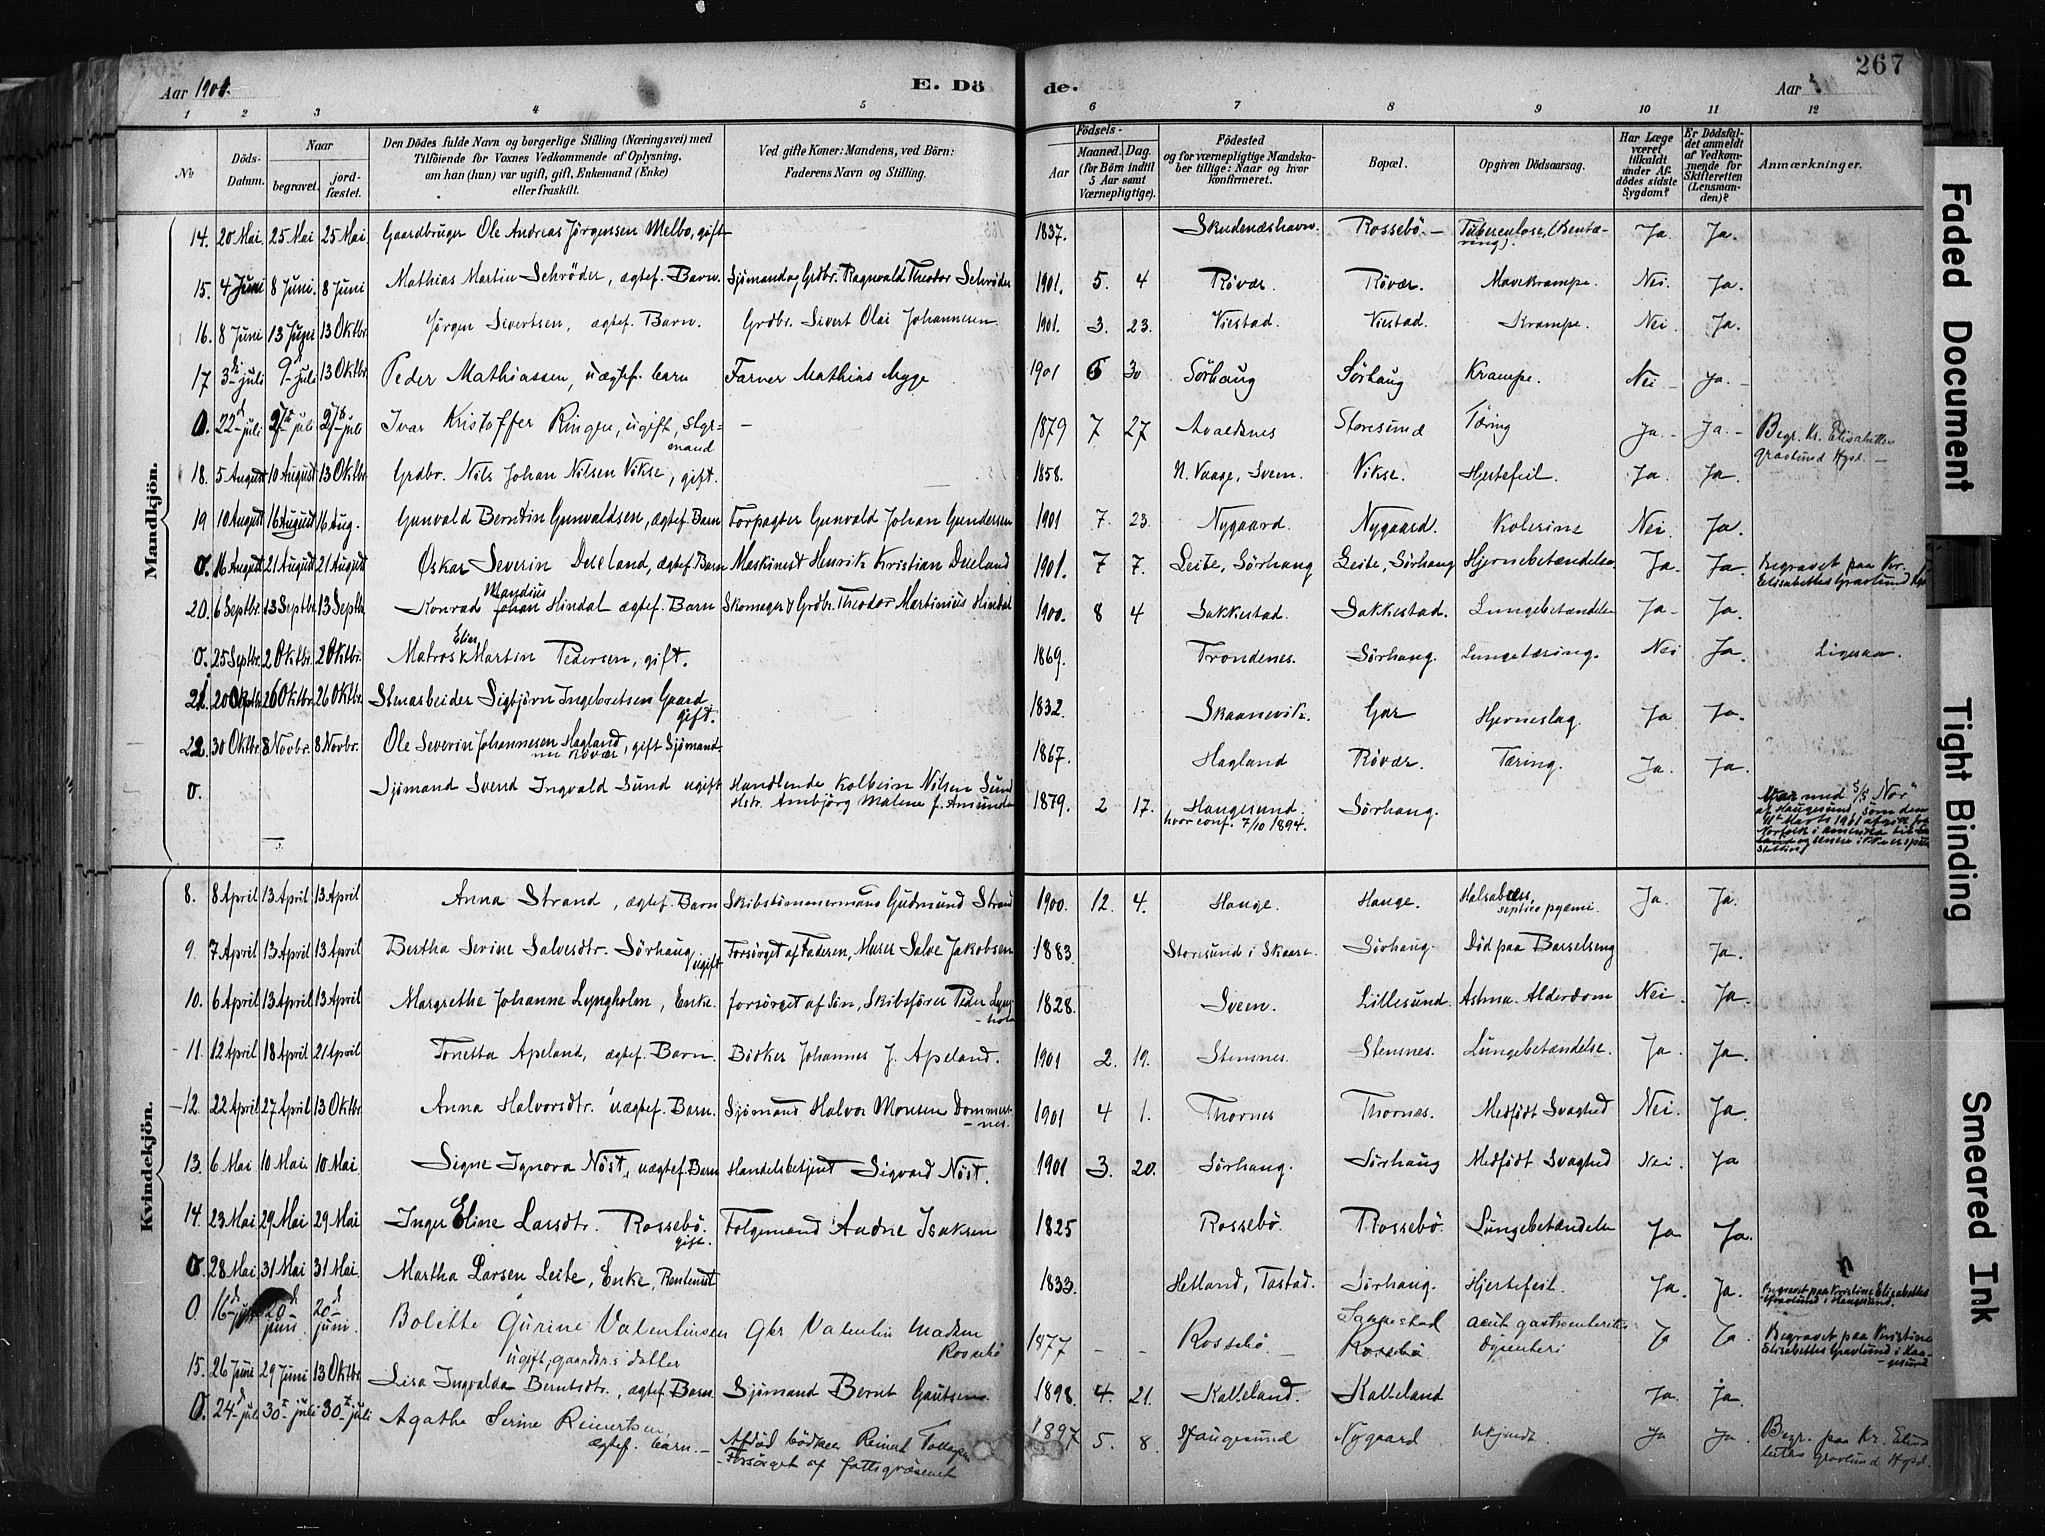 Aar 1901. E. Dö de. Aar 267
1 2 3 4 5 6 7 8 9 10 11 12
No
Döds-Datum.
Naar
begravet.
jord-fæstet.
Den Dödes fulde Navn og borgerlige Stilling (Næringsvei) med
Tilföiende for Voxnes Vedkommende af Oplysning,
om han (hun) var ugift, gift, Enkemand (Enke)
eller fraskilt.
Ved gifte Koner: Mandens, ved Börn:
Faderens Navn og Stilling.
Födsels-
Aar
Maaned. Dag.
(for Börn indtil
5 Aar samt
Værnepligtige).
Födested
og for værnepligtige Mandska-
ber tillige: Naar og hvor
konfirmeret.
Bopæl.
Opgiven Dödsaarsag.
Har Læge
været
tilkaldt
under Af-
dödes sidste
Sygdom?
Er Dödsfal-
det anmeldt
af Vedkom-
mende for
Skifteretten
(Lensman-
den)?
Anmærkninger.
Mandkjön.
14. 20 Mai. 25 Mai 25 Mai. Gaardbruger Ole Andreas Jörgensen Melbo, gift 1837. Skudenæshavn. Rossebö. Tuberculose, Ja. Ja.
15. 4 Juni 8 Juni. 8 Juni Mathias Martin Schröder, ægtef. Barn. Sjömand og Grdbr. Ragnvald Theodor Schröder 1901. 5. 4 Rövær. Rövær. Mavekrampe. Nei. Ja.
16. 8 Juni 13 Juni 13 Oktbr. Jörgen Sivertsen, ægtef. Barn. Grdbr. Sivert Olai Johannesen 1901. 3. 23. Viestad. Viestad. Krampe. Nei. Ja.
17 3 juli 9 juli 13 Oktbr. Peder Mathiassen, uægtef. barn Farver Mathias Myge 1901 6 30 Sörhaug Sörhaug Krampe. Nei Ja.
0. 22 juli 27 juli 27 juli Ivar Kristoffer Ringen, ugift, styr-
mand 1879 7 27 Avaldsnes Storesund Tæring Ja. Ja. Begr. Kr. Elisabethes
gravlund Hgsd.
18. 5 August 10 August 13 Oktbr. Grdbr. Nils Johan Nilsen Vikse, gift. 1858. N. Vaage, Sveen. Vikse. Hjertefeil. Ja. Ja.
19 10 August 16 August 16 Aug. Gunvald Berntin Gunvaldsen, ægtef. Barn Forpagter Gunvald Johan Gundersen 1901 7. 23. Nygaard. Nygaard. Kolerine Nei. Ja.
0. 16 August 21 August 21 August Oskar Severin Dueland, ægtef. Barn Maskinist Henrik Kristian Dueland 1901. 7 7. Leite, Sörhaug Leite, Sörhaug Hjernebetændelse Ja. Ja. Begravet paa Kr.
Elisabethes Gravlund
20. 6 Septbr. 13 Septbr. 13 Septbr. Konrad Mandius Johan Hindal ægtef. Barn Skomager & Grdbr. Theodor Martinius Hindal 1900. 8 4 Sakkestad. Sakkestad. Lungebetændelse Ja. Ja.
0. 25 Septbr. 2 Oktbr. 2 Oktbr. Matros Elias Martin Pedersen, gift. 1869. Trondenes. Sörhaug. Lungetæring. Nei Ja.
21. 20 Oktbr. 26 Oktbr. 26 Oktbr. Stenarbeider Sigbjörn Ingebretsen Gaard
gift. 1832. Skaanevik. Gar Hjerneslag Ja Ja.
22. 30 Oktbr. 8 Novbr. 8 Novbr. Ole Severin Johannesen Hagland, gift Sjömand
nu Rövær 1867. Hagland Rövær. Tæring. Ja. Ja.
0. Sjömand Svend Ingvald Sund ugift Handlende Kolbein Nilsen Sund
Hstr. Ambjörg Malene f. Amunds 1879. 2 17. Haugesund,
hvor conf. 7/10 1894. Sörhaug. Var med S/S "Nor"
af Haugesund, som den
Marts 1901 afgik fra
Norfolk i amerika
Kvindekjön.
8. 8 April 13 April 13 April Anna Strand, ægtef. Barn Skibstömmermand Gudmund Strand 1900. 12. 4. Hauge. Hauge. septico pyæmi. Ja. Ja.
9. 7 April 13 April 13 April Bertha Serine Salvesdtr. Sörhaug, ugift Forsörget af Faderen, Murer Salve Jakobsen 1883. Storesund i Skaare. Sörhaug. Död paa Barselseng Ja.
10. 6 April 13 April 13 April Margrethe Johanne Lyngholm, Enke. forsörget af Sön, Skibsförer Peder Lyng-
holm 1828. Sveen. Lillesund. Astma. Alderdom Nei. Ja.
11. 12 April 18 April 21 April Tonetta Apeland, ægtef. Barn. Bödker Johannes J. Apeland. 1901 2. 19. Stensnes. Stensnes. Lungebetændelse. Ja. Ja.
12. 22 April 27 April 13 Oktbr. Anna Halvorsdtr. uægtef. Barn. Sjömand Halvor Monsen Dommes-
nes. 1901 4 1. Thornes Thornes. Medfödt Svaghed Nei. Ja.
13. 6 Mai 10 Mai. 10 Mai. Signe Ignora Nöst, uægtef. Barn Handelsbetjent Sigvard Nöst. 1901 3. 20. Sörhaug. Sörhaug Medfödt Svaghed Nei. Ja
14. 23 Mai. 29 Mai 29 Mai Inger Eline Larsdtr. Rossebö.
gift. Folgemand Andre Isaksen 1825 Rossebö. Rossebö. Lungebetændelse Ja Ja.
0. 28 Mai. 31 Mai 31 Mai. Martha Larsen Leite, Enke, Rentenist 1833 Hetland, Tastad. Sörhaug. Hjertefeil. Ja. Ja. Begravet paa Kristine Elisabethes
Gravlund i Haugesund.
0 16 juni 20 juni 20 juni Bolette Gurine Valentinsen
ugift, gaardbr.s datter Gbr Valentin Madsen
Rossebö 1877 - - Rossebö. Rossebö acut gastroenterit
dysenteri Ja Ja. Begravet paa Kristine
Elisabethes Gravlund i Hau-
gesund
15. 26 Juni 29 Juni 13 Oktbr. Lisa Ingvalda Berntsdtr., ægtef. Barn. Sjömand Bernt Gautsen 1898. 4. 21. Kalleland. Kalleland Ja. Ja.
0. 24 juli 30 juli 30 juli Agathe Serine Reinertsen
ægtef. barn. Afdöd bödker Reinert Tollefsen
Forsörget af fattigvæsenet 1897 5. 8. Haugesund Nygaard ukjendt. Ja Ja. Begr. paa Kr. Elisa-
bethes Gravlund Hgsd.
Faded Document
Tight Binding
Smeared Ink